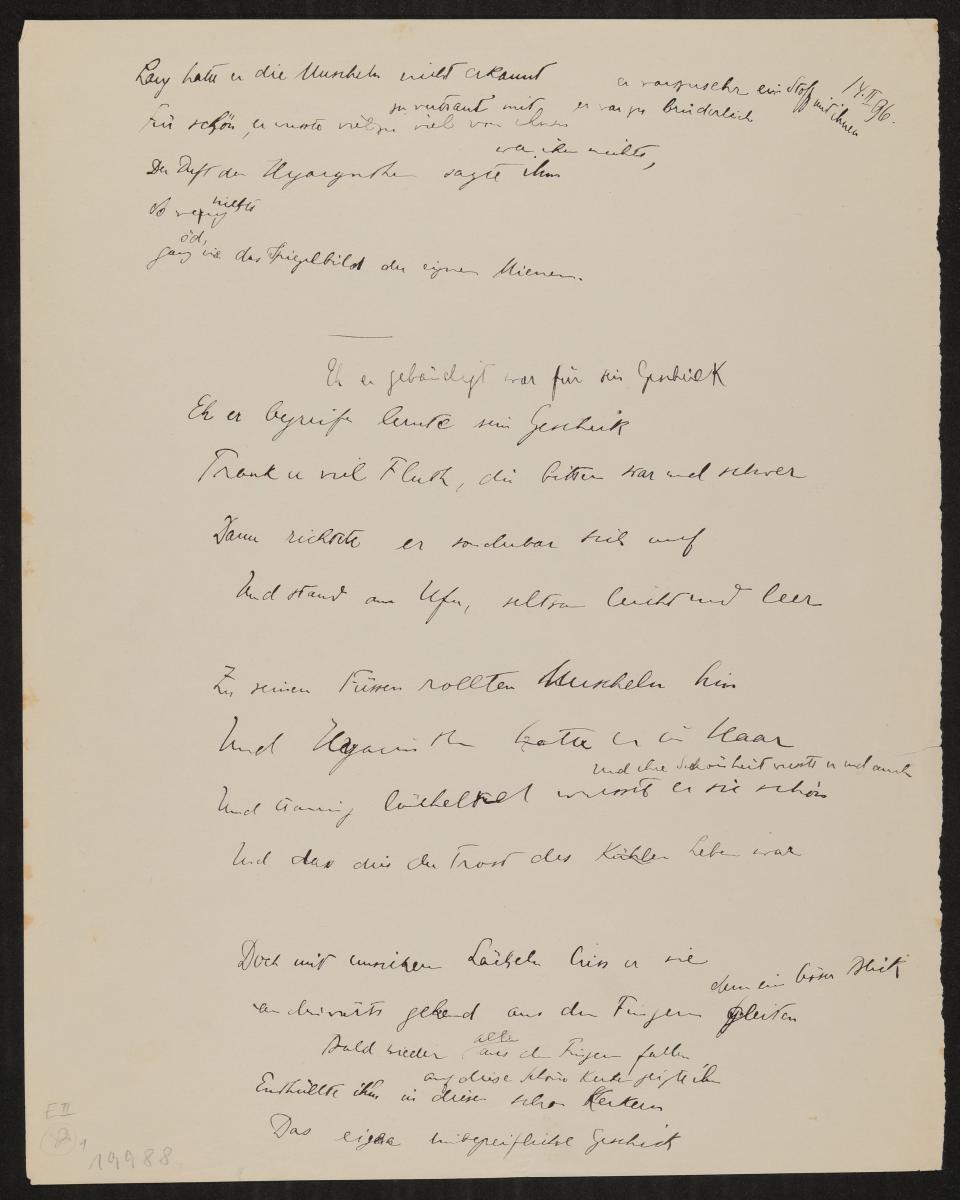 Lang hatte er die Muscheln nicht erkannt
14. II 96.
er war zu sehr ein Stoff mit ihnen
zu vertraut mit, er war zu brüderlich
Für schön, er wusste viel zu viel von ihnen
war ihm nichts,
Der Duft der Hyacynthen sagte ihm
So wenig nichts
öd,
ganz wie das Spiegelbild der eignen Mienen.
Eh er gebändigt war für sein Geschick
Eh er begreifen lernte sein Geschick
Trank er viel Fluth, die bitter war und schwer
Dann richtete er sonderbar sich auf
Und stand am Ufer, seltsam leicht und leer
Zu seinen Füssen rollten Muscheln hin
Und Hyacinthen hatte er im Haar
Und ihre Schönheit wusste er und auch
Und traurig lächelnd wusste er sie schön
Und das dies der Trost des Kühlen Leben war
Doch mit unsicherm Lächeln liess er sie
denn ein böser Blick
gehend aus den Fingern gleiten
Bald wieder alle aus den Fingern fallen
auf diese schönen Kerker zeigte ihm
Enthüllte ihm in diesen schönen Kerkern
Das eigene unbegreifliche Geschick
E II
2 1
19988